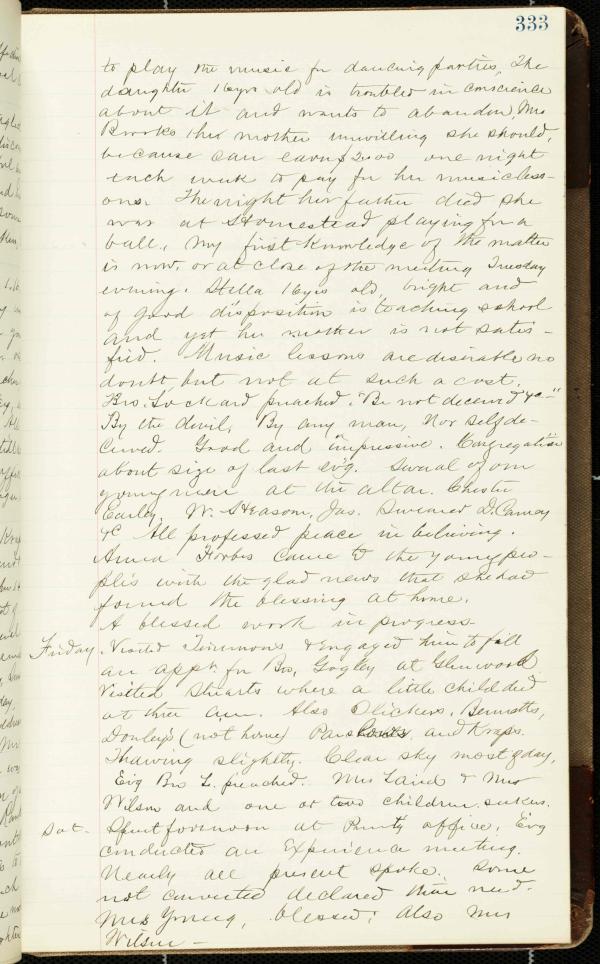 333
to play the music for dancing parties, The
daughter 16 yrs old is troubled in conscience
about it and wants to abandon, Mrs
Brooks her mother unwilling she should,
because can earn $2.00 one night
each week to pay for her music less-
ons. The night her father died she
was at Homestead playing for a
ball. My first knowledge of the matter
is now, or at close of the meeting Tuesday
evening. Stella 16 yrs old, bright and
of good disposition is teaching school
and yet her mother is not satis-
fied. Music lessons are desirable no
doubt, but not at such a cost.
Bro. Lockard preached. "Be not deceived &c-"
By the devil, By any man, Nor self de-
ceived. Good and impressive. Congregation
about size of last ev'g. Several of our
young men at the altar. Chester
Earley, W. Season, Jas. D.
&c All professed peace in believing.
Anna Forbes came to the young peo-
ple's with the glad news that she had
found the blessing at home.
A blessed work in progress
Friday. Visited Timmons & Engaged him to fill
an appt. for Bro. Gogley at Glenwood
Visited Stuarts where a little child died
at three a.m. Also Slickers, Bennetts,
Donley's (not home) and Kraps.
Thawing slightly. Clear sky most of day,
Evg Bro L. preached. Mrs Laird & Mrs
Wilson and one or two children seekers.
Sat. Spent forenoon at office. Evg
conducted an Experience meeting.
Nearly all present spoke. Some
not converted declared their need.
Mrs Young, blessed. Also Mrs
Wilson -